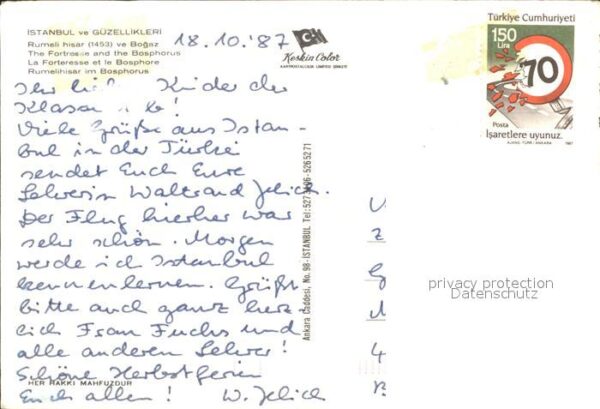 İSTANBUL ve GÜZELLİKLERİ
Rumeli hisar (1453) ve Boğaz
The Fortrosse and the Bosphorus
La Forteresse et le Bosphore
Rumelihisar im Bosphorus
18.10.'87
Keskin Color
KARTPOSTALCILIK LİMİTED ŞİRKETİ
Türkiye Cumhuriyeti
150
Lira
70
Posta
İşaretlere uyunuz.
AJANS-TÜRK/ANKARA 1987
Ihr Kinder der
Klassen b!
Viele Grüße aus Istan-
bul in der Türkei
sendet Euch Eure
Lehrerin Waltraud Jelich.
Der Flug hierher war
sehr schön. Morgen
werde ich Istanbul
kennenlernen. Grüßt
bitte auch ganz herz-
lich Frau Fuchs und
alle anderen Lehrer!
Schöne Herbstferien
Euch allen! W. Jelich
HER HAKKI MAHFUZDUR
Ankara Caddesi, No. 98 - İSTANBUL Tel: 5265271
privacy protection
Datenschutz